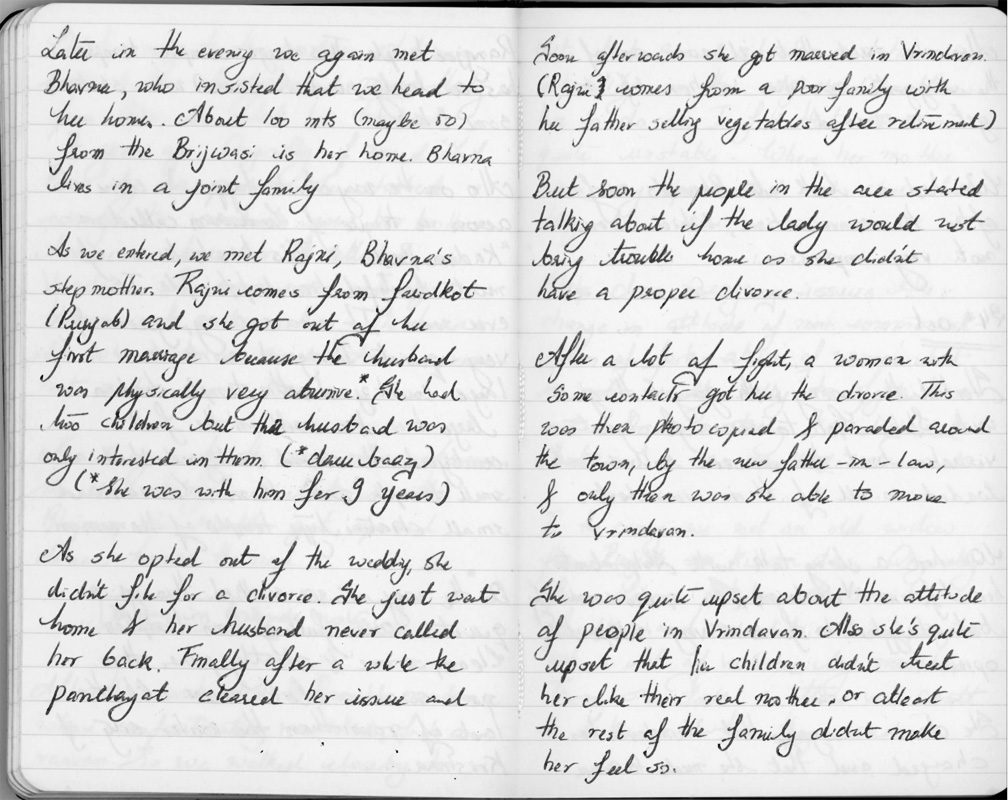 Later in the evening we again met
Bhavna, who insisted that we head to
her home. About 100 mts (maybe 50)
from the Brijwasi is her home. Bhavna
lives in a joint family
As we entered, we met Rajni, Bhavna's
step mother. Rajni comes from Faridkot
(Punjab) and she got out of her
first marriage because the husband
was physically very abusive.* She had
two children but the husband was
only interested in them. (*daru baazy)
(*She was with him for 9 years)
As she opted out of the wedding, she
didn't file for a divorce. She just went
home & her husband never called
her back. Finally after a while the
panchayat cleared her issue and
Soon afterwards she got married in Vrindavan.
(Rajni comes from a poor family with
her father selling vegetables after retirement)
But soon the people in the area started
talking about if the lady would not
bring trouble home as she didn't
have a proper divorce.
After a lot of fight, a woman with
some contacts got her the divorce. This
was then photocopied & paraded around
the town, by the new father-in-law,
& only then was she able to move
to Vrindavan.
She was quite upset about the attitude
of people in Vrindavan. Also she's quite
upset that her children didn't treat
her like their real mother, or atleast
the rest of the family didn't make
her feel so.